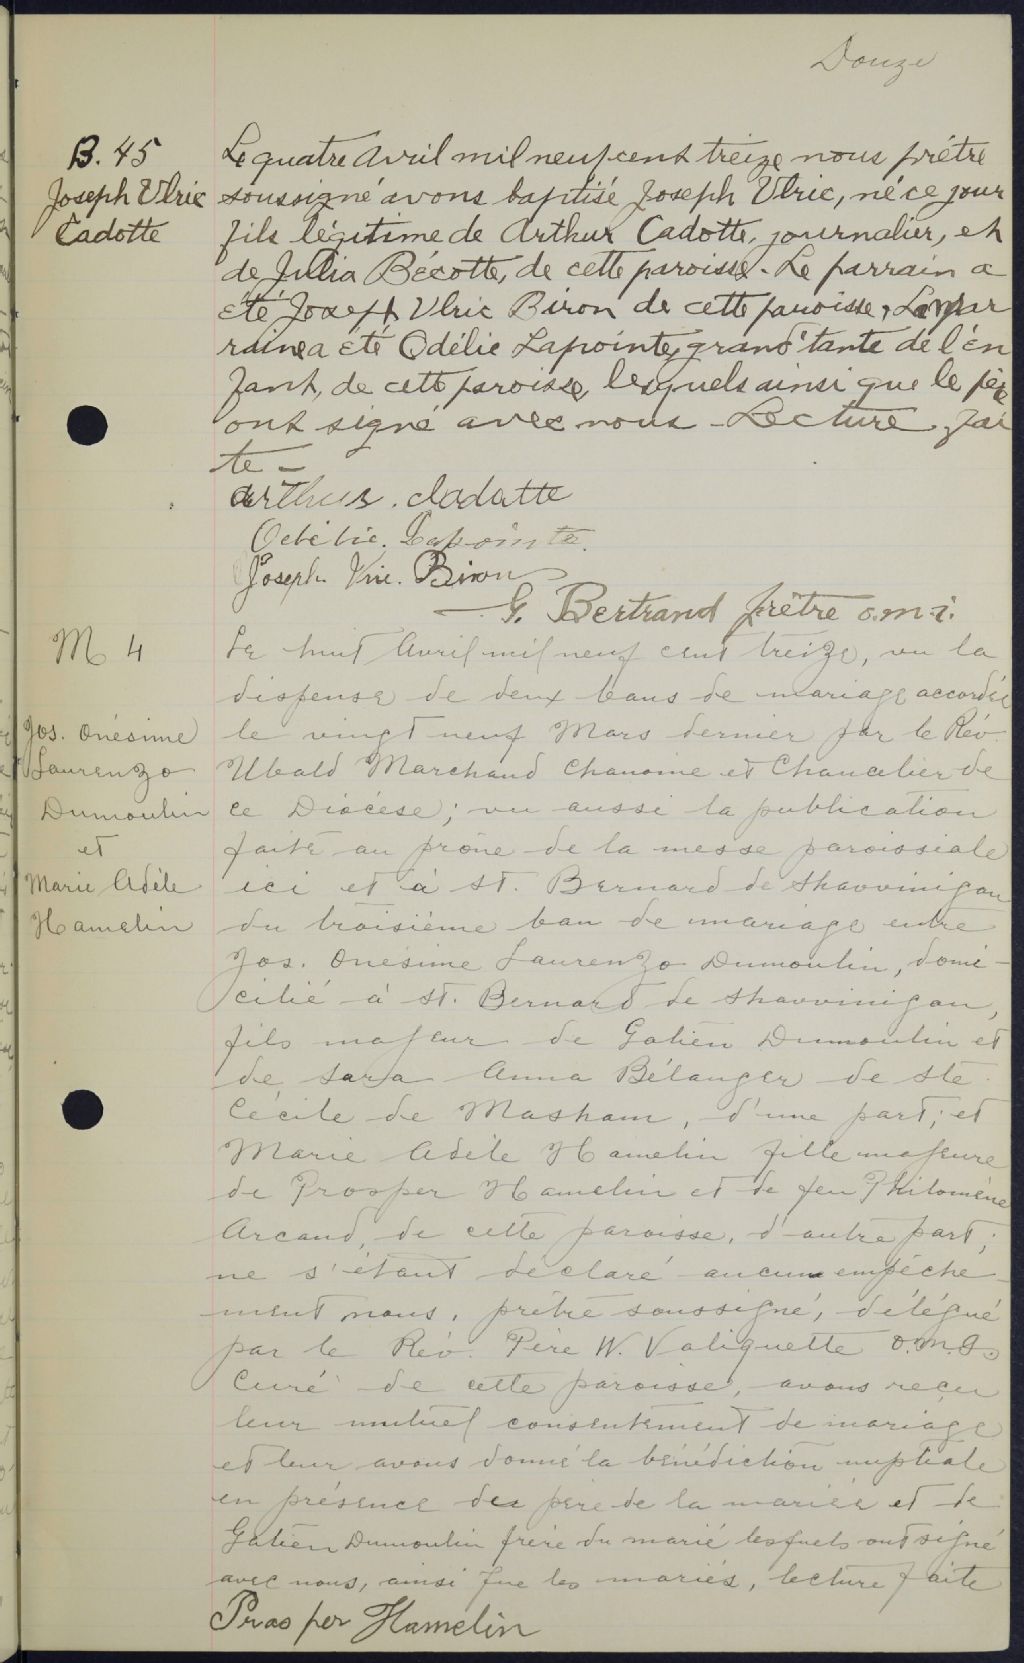 Douze
B. 45
Joseph Ulric
Cadotte
Le quatre Avril mil neuf cent treize nous prêtre
soussigné avons baptisé Joseph Ulric, né ce jour
fils légitime de Arthur Cadotte, journalier, et
de Julia Bécotte, de cette paroisse. Le parrain a
été Joseph Ulric Biron de cette paroisse, La mar
raine a été Odélie Lapointe, grand'tante de l'en
fant, de cette paroisse, lesquels ainsi que le père
ont signé avec nous. Lecture fai
te -
arthur. Cadotte
Odélie. Lapointe.
Joseph Biron
G. Bertrand prêtre o.m.i.
M 4
Jos. Onésime
Laurenzo
Dumoulin
et
Marie Adèle
Hamelin
Le huit Avril mil neuf cent treize, vu la
dispense de deux bans de mariage accordée
le vingt neuf Mars dernier par le Rév.
Ubald Marchand Chanoine et Chancelier de
ce Diocèse; vu aussi la publication
faite au prône de la messe paroissiale
ici et à St. Bernard de Shawinigan
du troisième ban de mariage entre
Jos. Onésime Laurenzo Dumoulin, domi-
cilié à St. Bernard de Shawinigan,
fils majeur de Gatien Dumoulin et
de Sara Anna Bélanger de Ste
Cécile de Masham, d'une part; et
Marie Adèle Hamelin fille majeure
de Prosper Hamelin et de feu Philomène
Arcand, de cette paroisse, d'autre part;
ne s'étant déclaré aucun empêche-
ment nous, prêtre soussigné, délégué
par le Rév. Père W. Valiquette O.M.I.
Curé de cette paroisse, avons reçu
leur mutuel consentement de mariage
et leur avons donné la bénédiction nuptiale
en présence des père de la mariée et de
Gatien Dumoulin frère du marié lesquels ont signé
avec nous, ainsi que les mariés, lecture faite
Prosper Hamelin